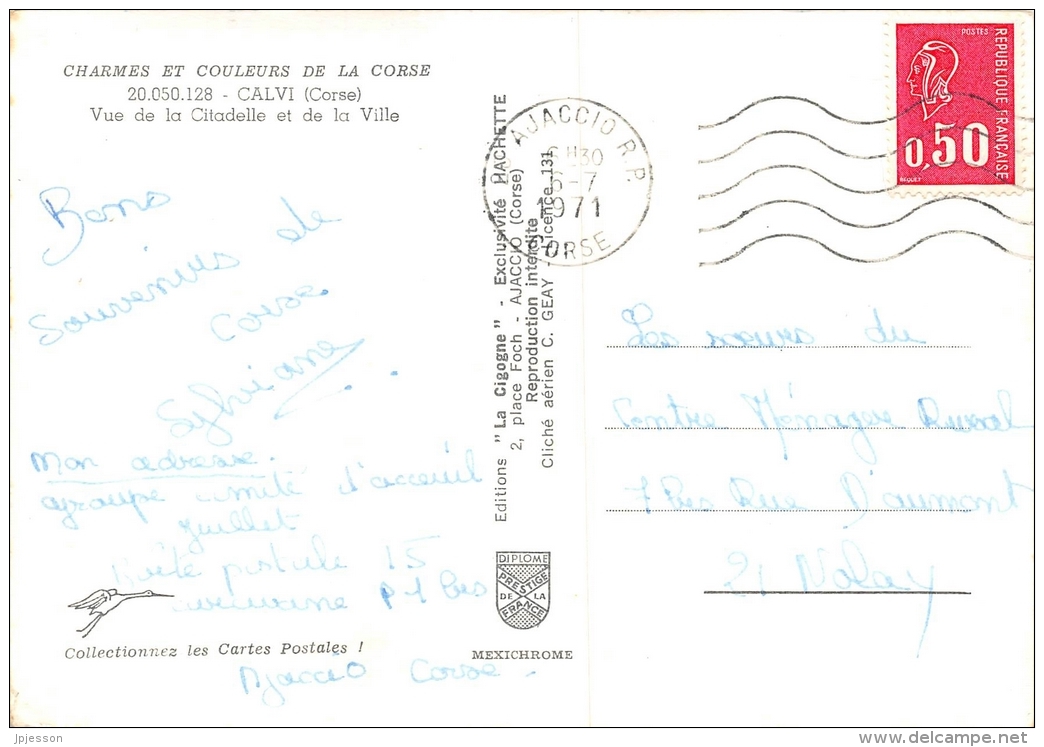 CHARMES ET COULEURS DE LA CORSE
20.050.128 - CALVI (Corse)
Vue de la Citadelle et de la Ville
Bons
souvenirs de
Corse
Sylviane
Mon adresse.
groupe comité d'acceuil
juillet
Boîte postale 15
p 1 bis
Ajaccio Corse
Collectionnez les Cartes Postales !
Editions "La Cigogne" - Exclusivité HACHETTE
2, place Foch - AJACCIO (Corse)
Reproduction interdite
Cliché aérien C. GEAY - Licence 131
DIPLOME
PRESTIGE
DE LA
FRANCE
MEXICHROME
AJACCIO R.P.
H30
6-7
1971
CORSE
POSTES
REPUBLIQUE FRANÇAISE
0,50
BEQUET
Les soeurs du
Centre Ménager Rural
7 bis Rue D'aumont
21 Nolay
jpjesson
www.delcampe.net